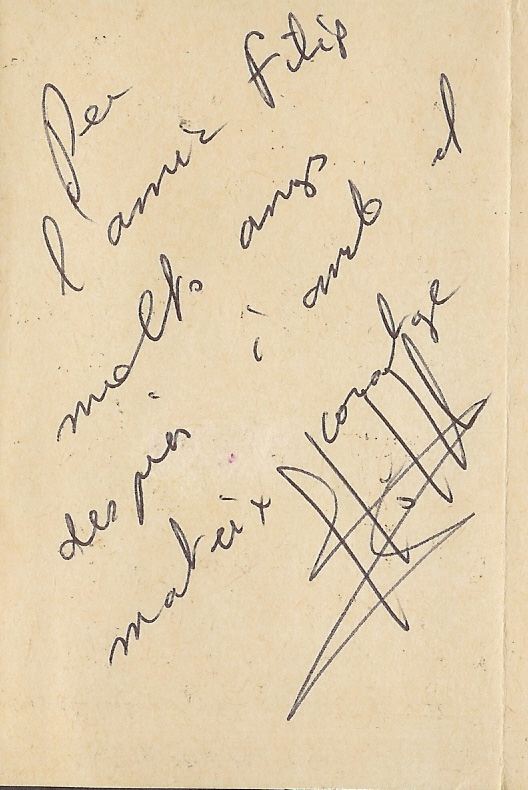 Per
l'amic Filip
molts anys
després i amb el
mateix coratge